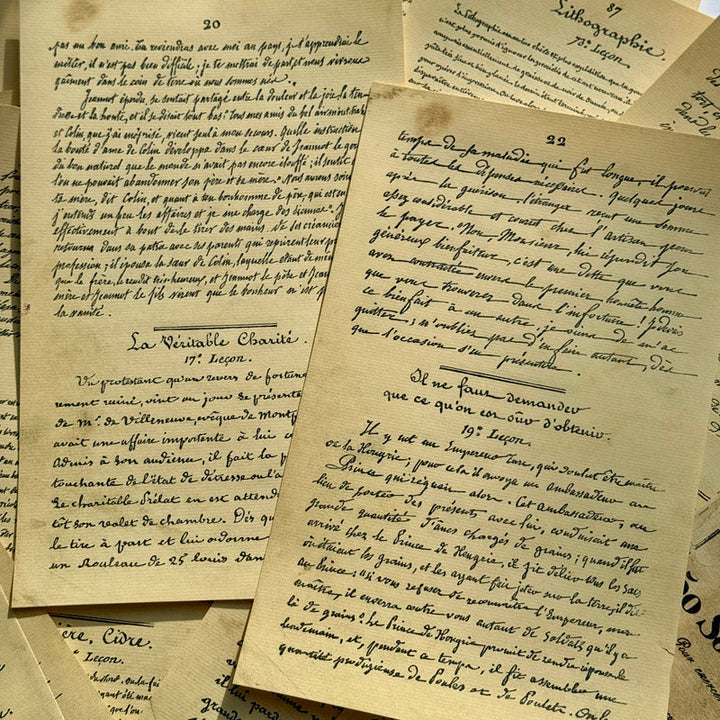 20
pas un bon ami. Tu reviendras avec moi au pays, je t'apprendrai le
métier, il n'est pas bien difficile; je te mettrai de part, et nous vivrons
gaîment dans le coin de terre où nous sommes nés.
Jeannot éperdu, se sentait partagé entre la douleur et la joie, la ten-
dresse et la honte, et il se disait tout bas: Tous mes amis du bel air m'ont trahi
et Colin, que j'ai méprisé, vient seul à mon secours. Quelle instruction
la bonté d'âme de Colin développa dans le cœur de Jeannot le ger
du bon naturel que le monde n'avait pas encore étouffé; il sentit q
l'on ne pouvait abandonner son père et sa mère. Nous aurons soin
ta mère, dit Colin, et quant à ton bonhomme de père, qui est en
j'entends un peu les affaires et je me charge des siennes.
effectivement à bout de le tirer des mains de sa créanci
retourna dans sa patrie avec ses parents qui reprirent leur p
profession; il épousa la sœur de Colin, laquelle étant de mê
que le frère, le rendit très-heureux, et Jeannot le père et Jean
mère et Jeannot le fils virent que le bonheur n'est p
la vanité.
La Véritable Charité.
17e Leçon.
Un protestant qu'un revers de fortune
rement ruiné, vint un jour se présente
de Mr. de Villeneuve, évêque de Montp
avait une affaire importante à lui c
Admis à son audience, il fait la p
touchante de l'état de détresse où l'a
Le charitable Prélat en est attend
tôt son valet de chambre. Dès qu
le tire à part et lui ordonne
un Rouleau de 25 louis dan
87
Lithographie.
73e Leçon.
22
temps de sa maladie qui fut longue, il pourvut
à toutes les dépenses nécessaires. Quelques jours
après la guérison, l'étranger reçut une somme
assez considérable et courut chez l'artisan pour
le payer. Non, Monsieur, lui répondit son
généreux bienfaiteur, c'est une dette que vous
avez contractée envers le premier honnête homme
que vous trouverez dans l'infortune! Je devais
ce bienfait à un autre, je viens de m'ac
quitter; n'oubliez pas d'en faire autant, dès
que l'occasion s'en présentera.
Il ne faut demander
que ce qu'on est sûr d'obtenir.
19e Leçon.
Il y eut un Empereur Turc, qui voulut être maître
de la Hongrie; pour cela il envoya un ambassadeur au
Prince qui régnait alors. Cet ambassadeur, au
lieu de porter des présents avec lui, conduisait une
grande quantité d'ânes chargés de grains; quand il fut
arrivé chez le Prince de Hongrie, il fit délier tous les sacs
contenant les grains, et les ayant fait jeter sur la terre, il dit
au Prince; si vous refusez de reconnaître l'Empereur, mon
maître, il enverra contre vous autant de Soldats qu'il y a
là de grains. Le Prince de Hongrie promit de rendre réponse le
lendemain, et, pendant ce temps, il fit assembler une
quantité prodigieuse de Poules et de Poulets. On l
Cidre.
Leçon.